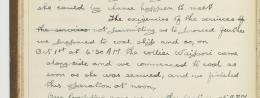 she could by chance happen to meet
The exigencies of the services of
the services not permitting us to proceed further
we prepared to coal ship and so, on
Oct 1st at 6.30 AM the collier Waipori came
alongside and we commenced to coal as
soon as she was secured, and we finished
this operation at noon.